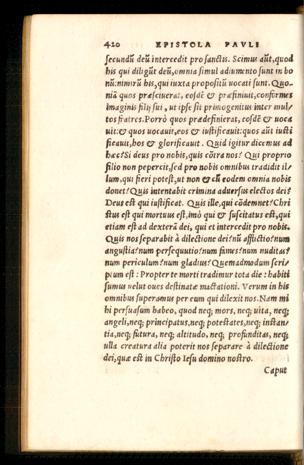 420 EPISTOLA PAVLI
secundũ deũ intercedit pro sanctis. Scimus aũt, quod
his qui diligũt deũ, omnia simul adiumento sunt in bo
nũ: nimirũ his, qui iuxta propositũ uocati sunt. Quo
niã quos præsciuerat, eosdẽ & præfiniuit, conformes
imaginis filij sui, ut ipse sit primogenitus inter mul
tos fratres. Porrò quos prædefinierat, eosdẽ & uoca
uit: & quos uocauit, eos & iustificauit: quos aũt iusti
ficauit, hos & glorificauit. Quid igitur dicemus ad
hæc? Si deus pro nobis, quis cõtra nos? Qui proprio
filio non pepercit, sed pro nobis omnibus tradidit il-
lum, quî fieri potest, ut non & cũ eodem omnia nobis
donet? Quis intentabit crimina aduersus electos dei?
Deus est qui iustificat. Quis ille, qui cõdemnet? Chri
stus est qui mortuus est, imò qui & suscitatus est, qui
etiam est ad dexterã dei, qui et intercedit pro nobis.
Quis nos separabit à dilectione dei? nũ afflictio? num
angustia? num persequutio? num fames? num nuditas?
num periculum? num gladius? Quemadmodum scri
ptum est: Propter te morti tradimur tota die: habiti
sumus uelut oues destinatæ mactationi. Verum in his
omnibus superamus per eum qui dilexit nos. Nam mi
hi persuasum habeo, quod neq; mors, neq; uita, neq;
angeli, neq; principatus, neq; potestates, neq; instan-
tia, neq; futura, neq; altitudo, neq; profunditas, neq;
ulla creatura alia poterit nos separare à dilectione
dei, quæ est in Christo Iesu domino nostro.
Caput